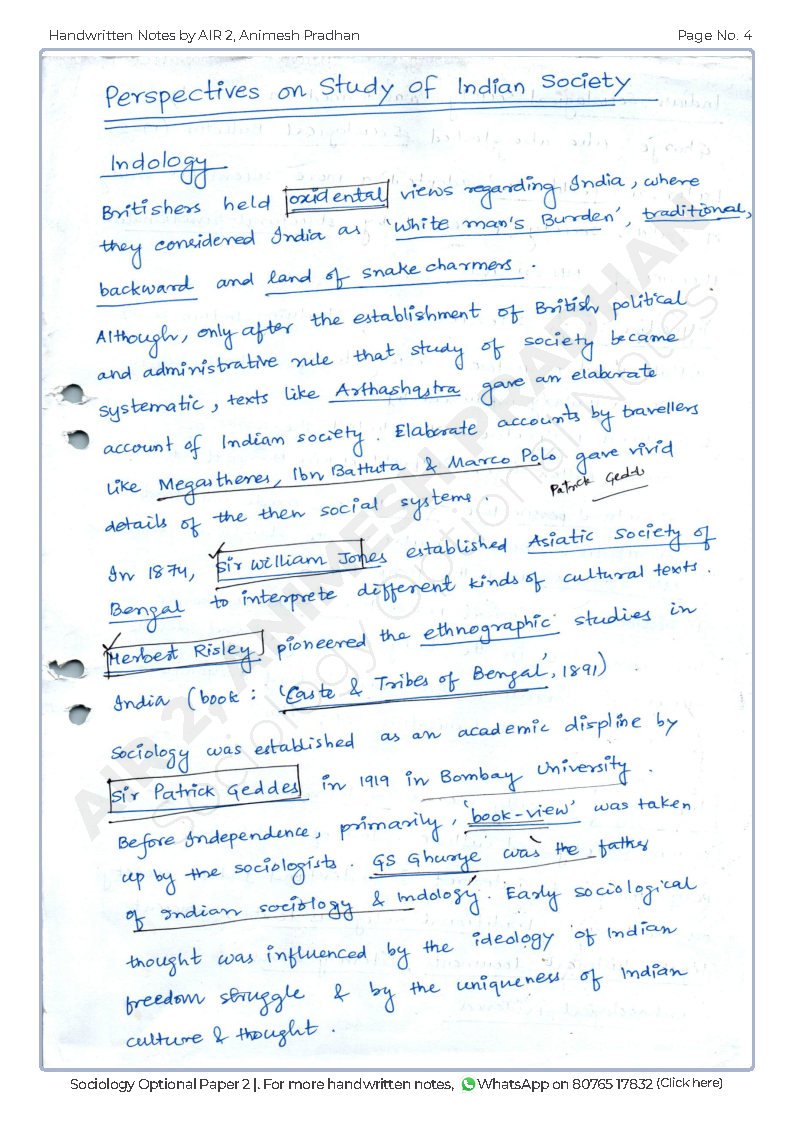 Handwritten Notes by AIR 2, Animesh Pradhan Page No. 4
Perspectives on Study of Indian Society
Indology
Britishers held oxidental views regarding India, where
they considered India as 'White man's Burden', traditional,
backward and land of snake charmers.
Although, only after the establishment of British political
and administrative rule that study of society became
systematic, texts like Arthashastra gave an elaborate
account of Indian society. Elaborate accounts by travellers
like Megasthenes, Ibn Battuta & Marco Polo gave vivid
Patrick Gedds
details of the then social systems.
In 1874, Sir William Jones established Asiatic Society of
Bengal to interprete different kinds of cultural texts.
Herbert Risley pioneered the ethnographic studies in
India (book: 'Caste & Tribes of Bengal', 1891)
Sociology was established as an academic displine by
Sir Patrick Geddes in 1919 in Bombay University.
Before Independence, primarily, 'book-view' was taken
up by the sociologists. GS Ghurye was the father
of Indian sociology & Indology. Early sociological
thought was influenced by the ideology of Indian
freedom struggle & by the uniqueness of Indian
culture & thought.
AIR 2, ANIMESH PRADHAN
Sociology Optional Notes
Sociology Optional Paper 2 |. For more handwritten notes, WhatsApp on 80765 17832 (Click here)